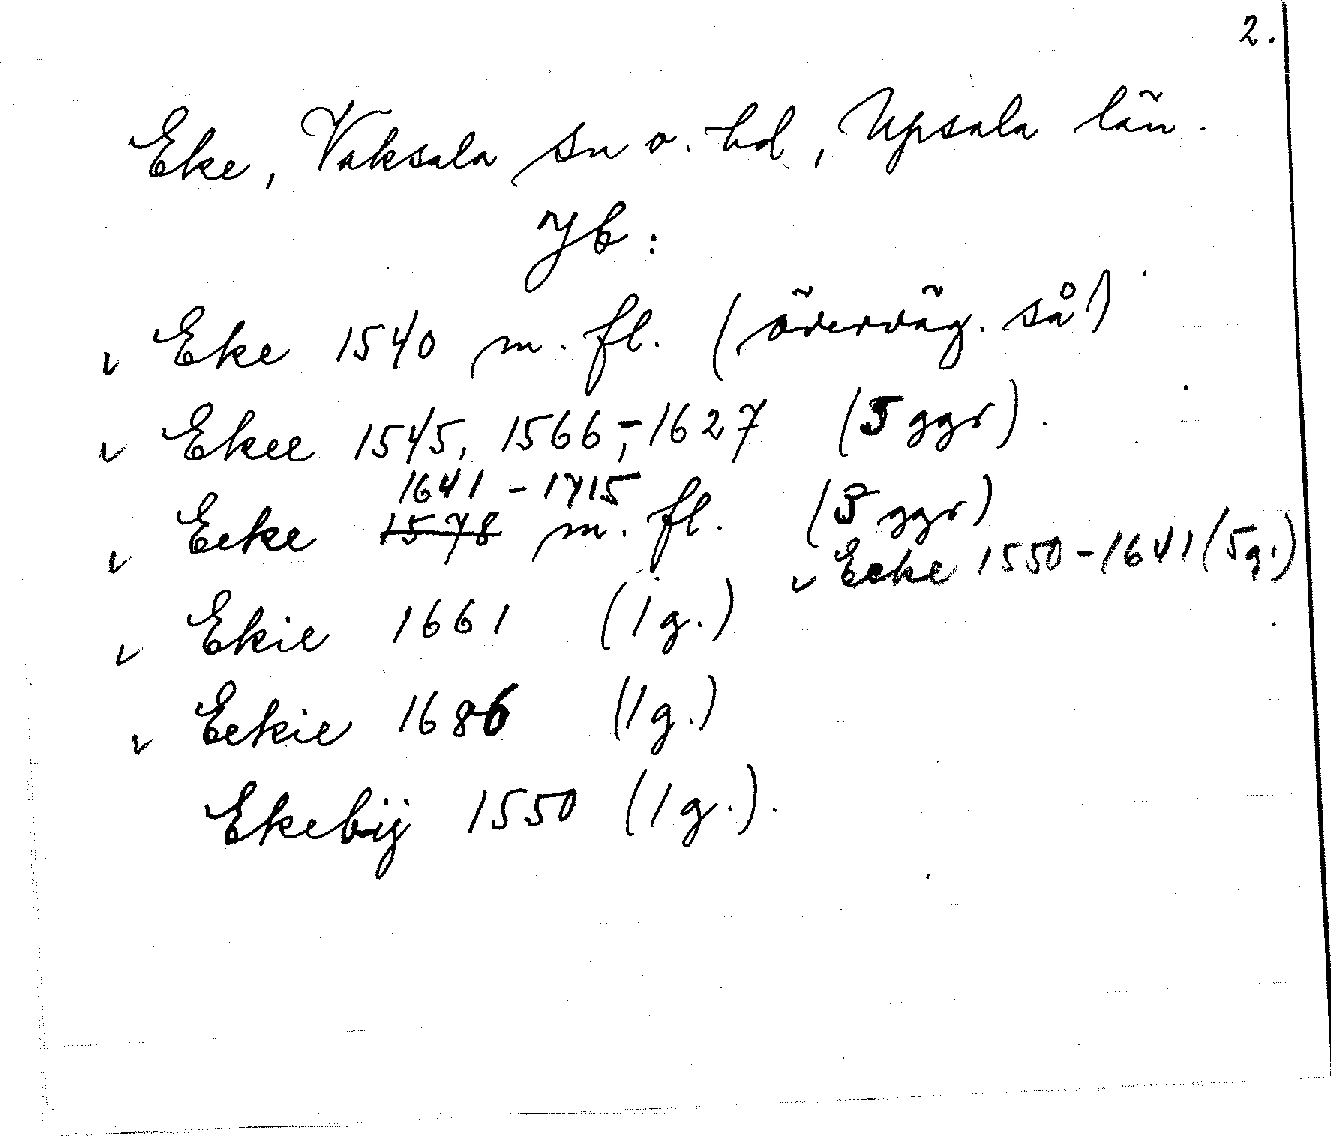 2.
Eke, Vaksala sn o. hd, Upsala län.
Jb:
v Eke 1540 m. fl. (överväg. så)
v Ekee 1545, 1566, -1627 (5 ggr).
1641 - 1715
v Eeke 1578 m. fl. (3 ggr)
v Ecke 1550-1641 (5g.)
v Ekie 1661 (1g.)
v Eekie 1686 (1g.)
Ekebij 1550 (1g.).